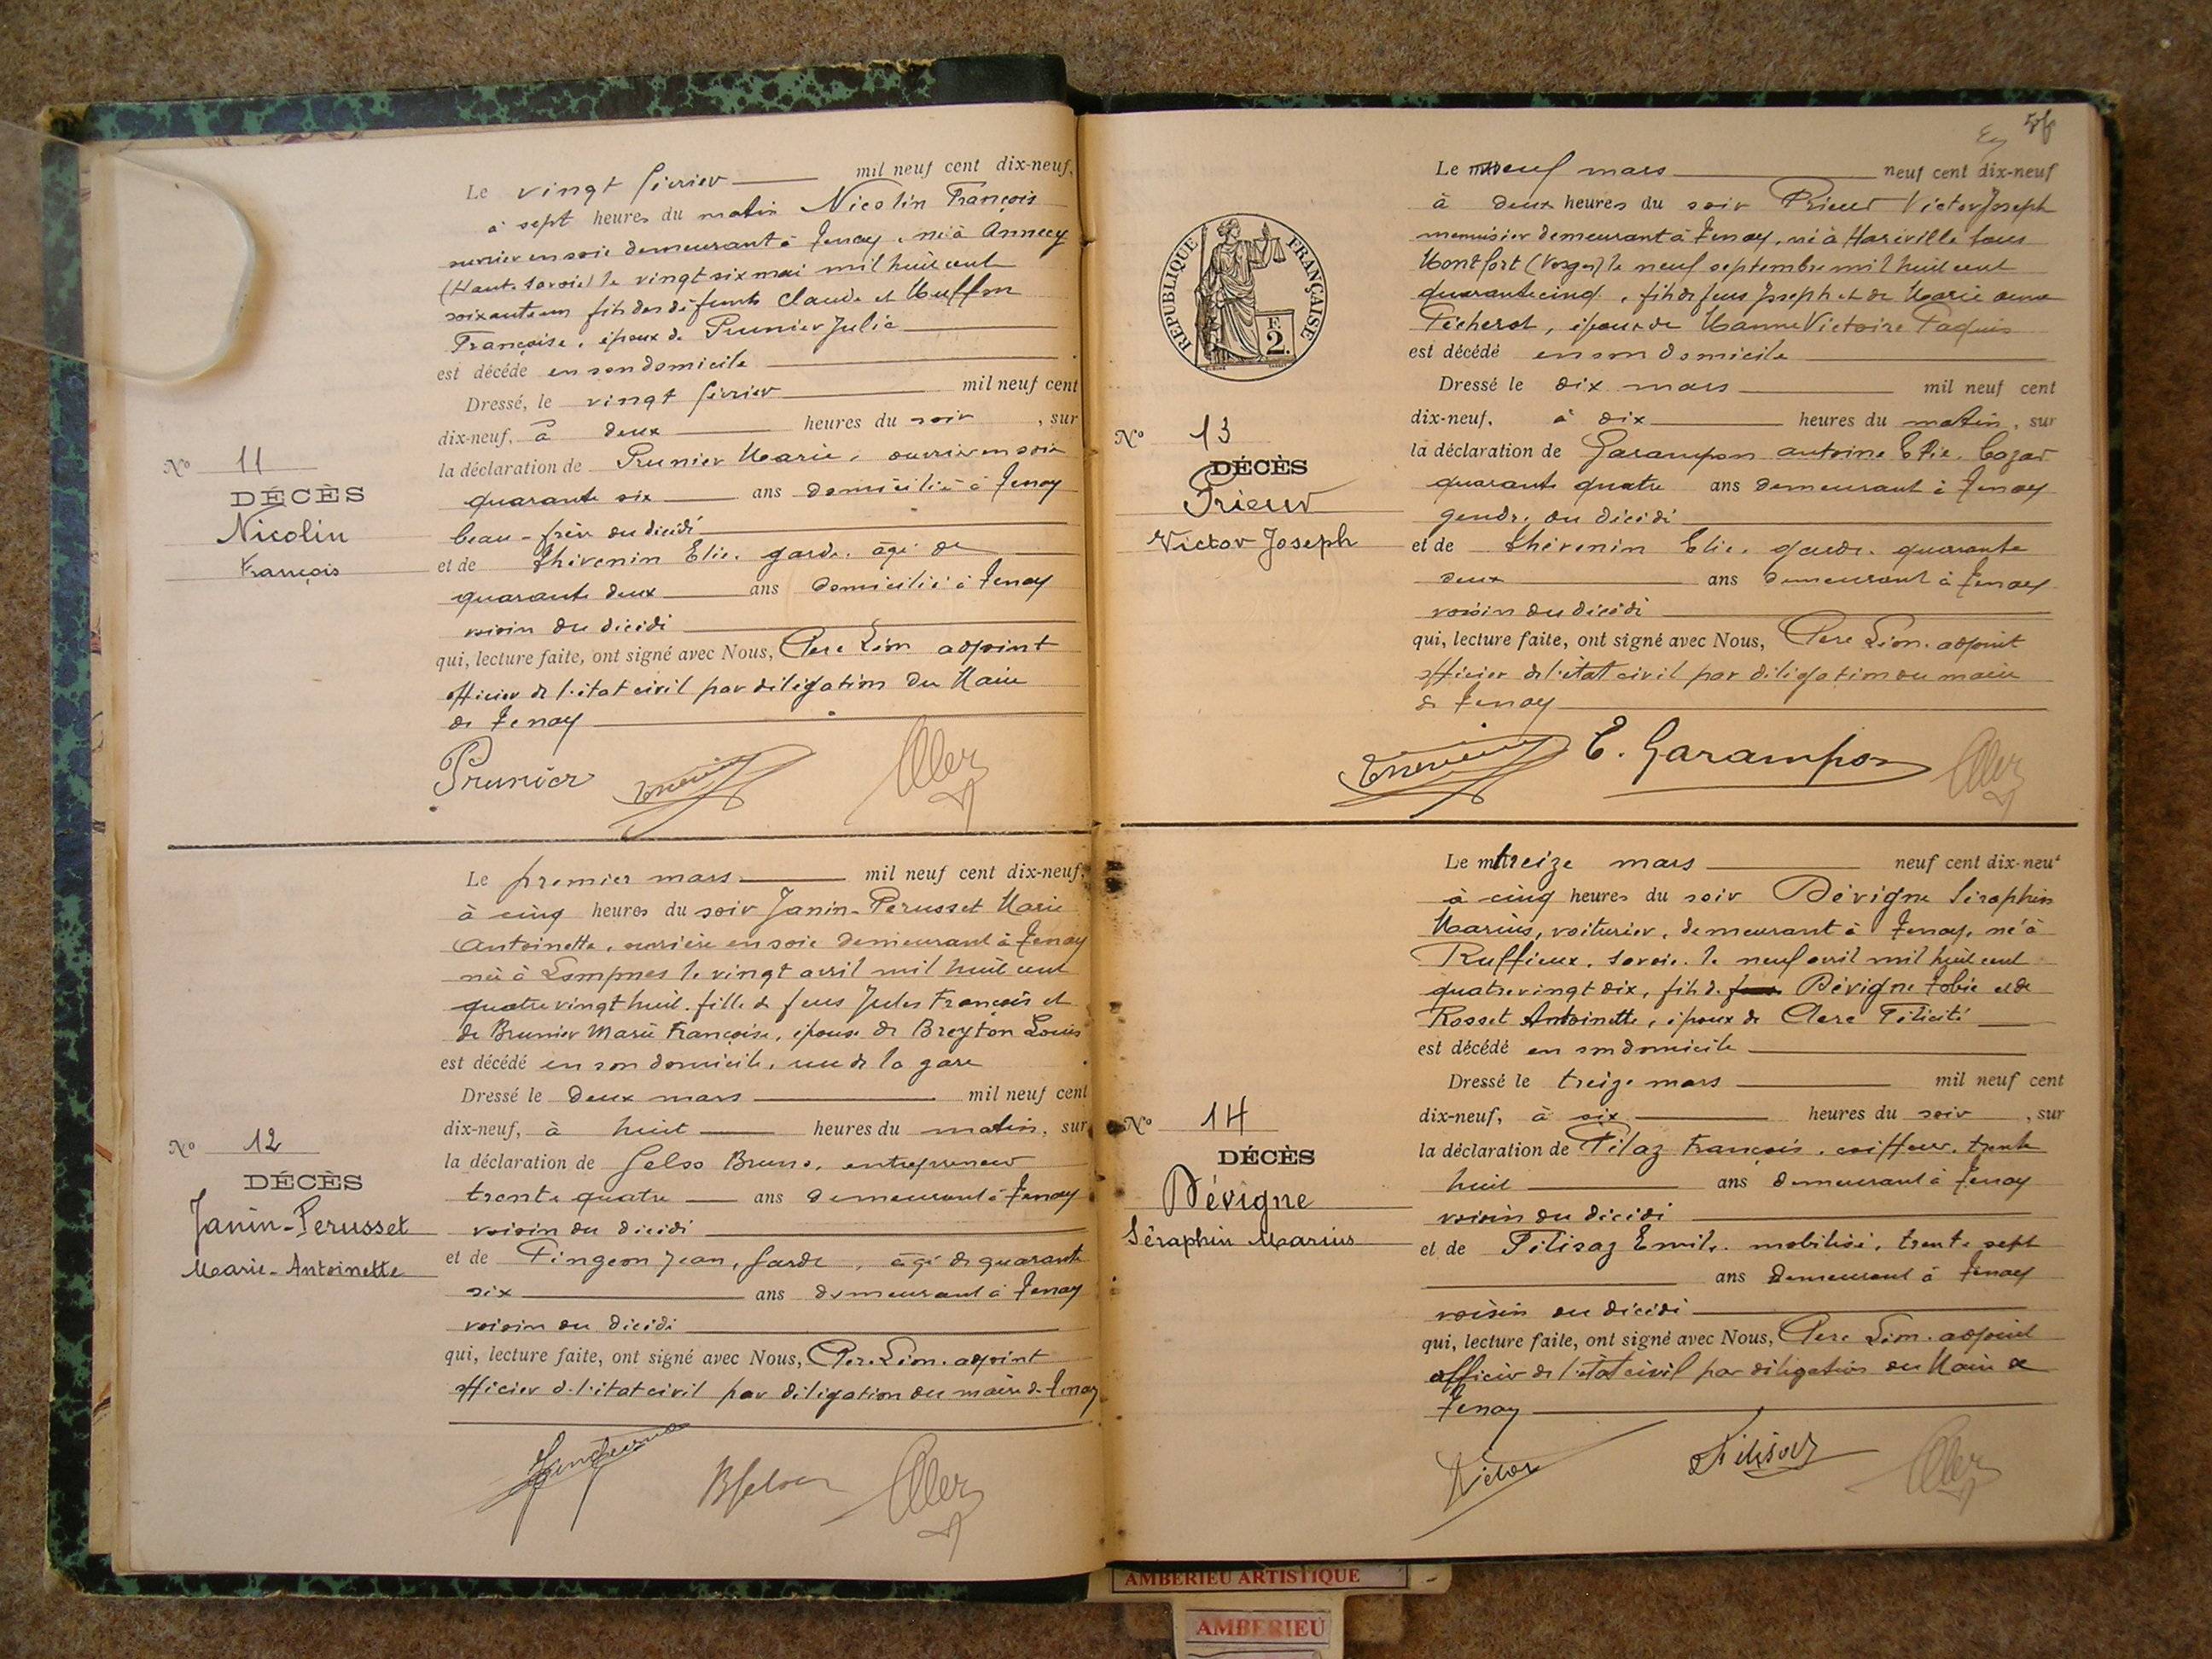 Le vingt février mil neuf cent dix-neuf,
à sept heures du matin Nicolin François
ouvrier en soie demeurant à Tenay, né à Annecy
(Haute Savoie) le vingt six mai mil huit cent
soixante un fils des défunts Claude et
Françoise, époux de Prunier Julie
est décédé en son domicile
Dressé, le vingt février mil neuf cent
dix-neuf, à deux heures du soir, sur
la déclaration de Prunier Marie, ouvrier en soie
quarante six ans domicilié à Tenay
beau-frère du décédé
et de Thévenin Elie, garde, âgé de
quarante deux ans domicilié à Tenay
voisin du décédé
qui, lecture faite, ont signé avec Nous, Clerc Léon adjoint
officier de l'état civil par délégation du Maire
de Tenay
Nº 11
DÉCÈS
Nicolin
François
Prunier
Le premier mars mil neuf cent dix-neuf,
à cinq heures du soir Janin-Perusset Marie
Antoinette, ouvrière en soie demeurant à Tenay
née à Lompnes le vingt avril mil huit cent
quatre vingt huit, fille de feus Jules François et
de Brunier Marie Françoise, épouse de Breyton Louis
est décédé en son domicile, rue de la gare
Dressé le deux mars mil neuf cent
dix-neuf, à huit heures du matin, sur
la déclaration de Gelso Bruno, entrepreneur
trente quatre ans demeurant à Tenay
voisin du décédé
et de Pingeon Jean, garde, âgé de quarante
six ans demeurant à Tenay
voisin du décédé
qui, lecture faite, ont signé avec Nous, Clerc Léon, adjoint
officier de l'état civil par délégation du maire de Tenay
Nº 12
DÉCÈS
Janin-Perusset
Marie-Antoinette
Le neuf mars neuf cent dix-neuf
à deux heures du soir Prieur Victor Joseph
menuisier demeurant à Tenay, né à Haréville sous
Montfort (Vosges) le neuf septembre mil huit cent
quarante cinq, fils de feus Joseph et de Marie Anne
Pécherot, époux de Victoire Paquis
est décédé en son domicile
Dressé le dix mars mil neuf cent
dix-neuf, à dix heures du matin, sur
la déclaration de Garampon Antoine Elie,
quarante quatre ans demeurant à Tenay
gendre du décédé
et de Thévenin Elie, garde, quarante
deux ans demeurant à Tenay
voisin du décédé
qui, lecture faite, ont signé avec Nous, Clerc Léon, adjoint
officier de l'état civil par délégation du maire
de Tenay
REPUBLIQUE FRANÇAISE
F.
2.
Nº 13
DÉCÈS
Prieur
Victor Joseph
E. Garampon
Le treize mars neuf cent dix-neuf
à cinq heures du soir Dévigne Séraphin
Marius, voiturier, demeurant à Tenay, né à
Ruffieux, Savoie, le neuf avril mil huit cent
quatre vingt dix, fils de Dévigne Tobie et de
Rosset Antoinette, époux de Clerc Félicité
est décédé en son domicile
Dressé le treize mars mil neuf cent
dix-neuf, à six heures du soir, sur
la déclaration de Pilaz François, coiffeur, trente
huit ans demeurant à Tenay
voisin du décédé
et de Pélisaz Emile, mobilisé, trente sept
ans demeurant à Tenay
voisin du décédé
qui, lecture faite, ont signé avec Nous, Clerc Léon, adjoint
officier de l'état civil par délégation du Maire de
Tenay
Nº 14
DÉCÈS
Dévigne
Séraphin Marius
AMBERIEU ARTISTIQUE
AMBERIEU